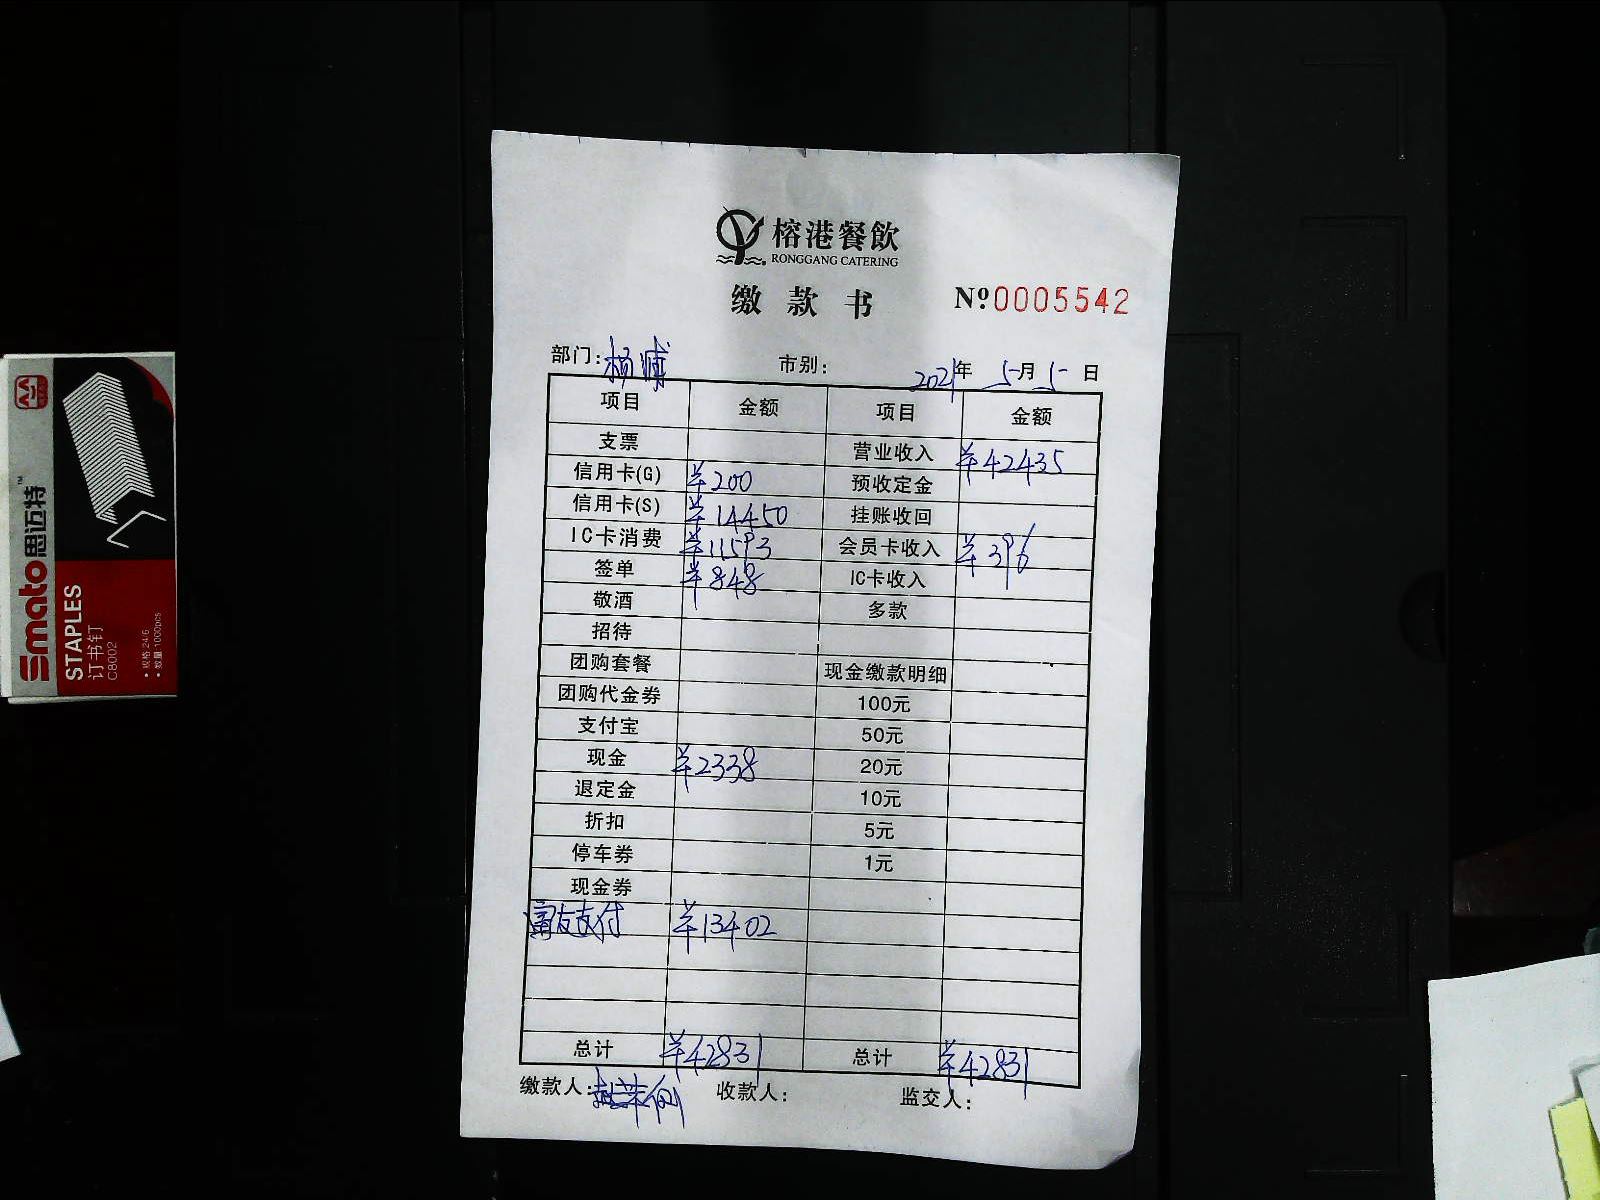 榕港餐飲
RONGGANG CATERING
缴款书 Nº 0005542
部门: 杨浦 市别: 2021年 5月 5日
项目 金额 项目 金额
支票 营业收入 ¥42435
信用卡(G) ¥200 预收定金
信用卡(S) ¥14450 挂账收回
IC卡消费 ¥11593 会员卡收入 ¥396
签单 ¥848 IC卡收入
敬酒 多款
招待
团购套餐 现金缴款明细
团购代金券 100元
支付宝 50元
现金 ¥2338 20元
退定金 10元
折扣 5元
停车券 1元
现金券
富友支付 ¥13402
总计 ¥42831 总计 ¥42831
缴款人: 收款人: 监交人:
Smato思迈特™
STAPLES
订书钉
C8002
:规格:24/6
:数量:1000pcs